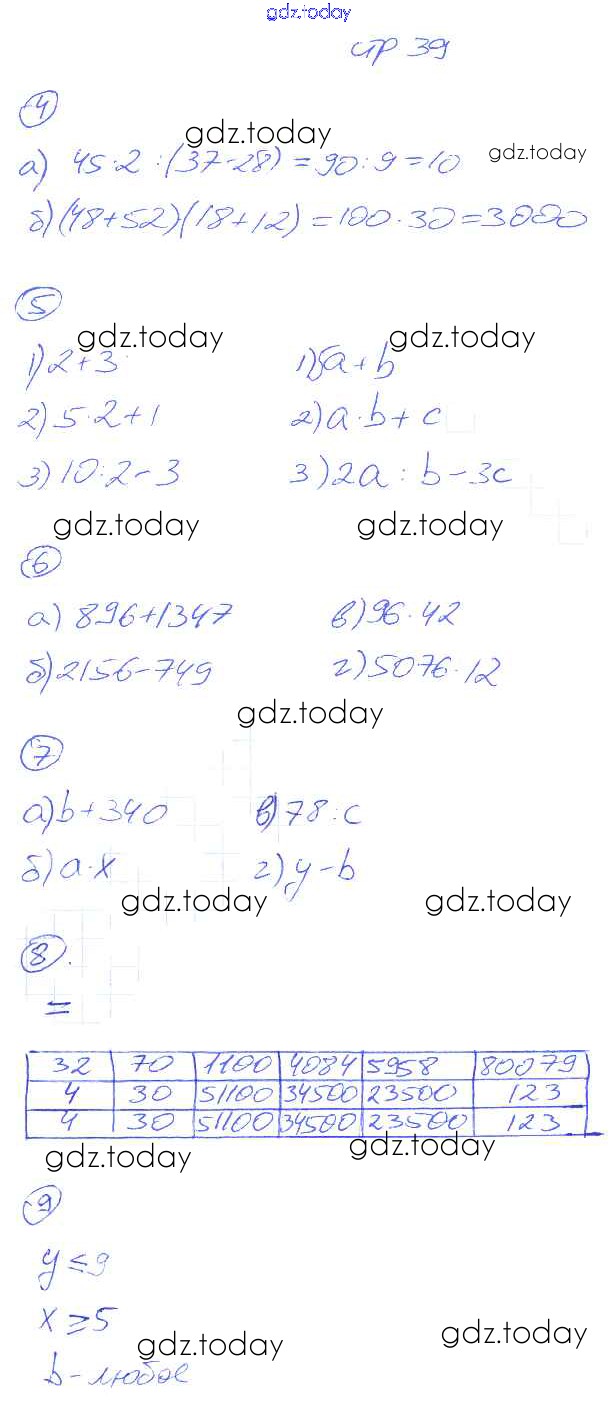 gdz.today
стр 39
4
gdz.today
а) 45·2 :(37-28) = 90:9 = 10 gdz.today
б)(48+52)(18+12) = 100·30=3000
5
gdz.today gdz.today
1)2+3 1)5a+b
2)5·2+1 2)a·b+c
3)10:2-3 3)2a : b-3c
gdz.today gdz.today
6
а) 896+1347 в)96·42
б)2156-749 г)5076·12
gdz.today
7
а)b+340 в)78:c
б)a·x г)y-b
gdz.today gdz.today
8.
=
32 70 1100 4084 5958 80079
4 30 51100 34500 23500 123
4 30 51100 34500 23500 123
gdz.today gdz.today
9
y≤9
x≥5
gdz.today gdz.today
b-любое